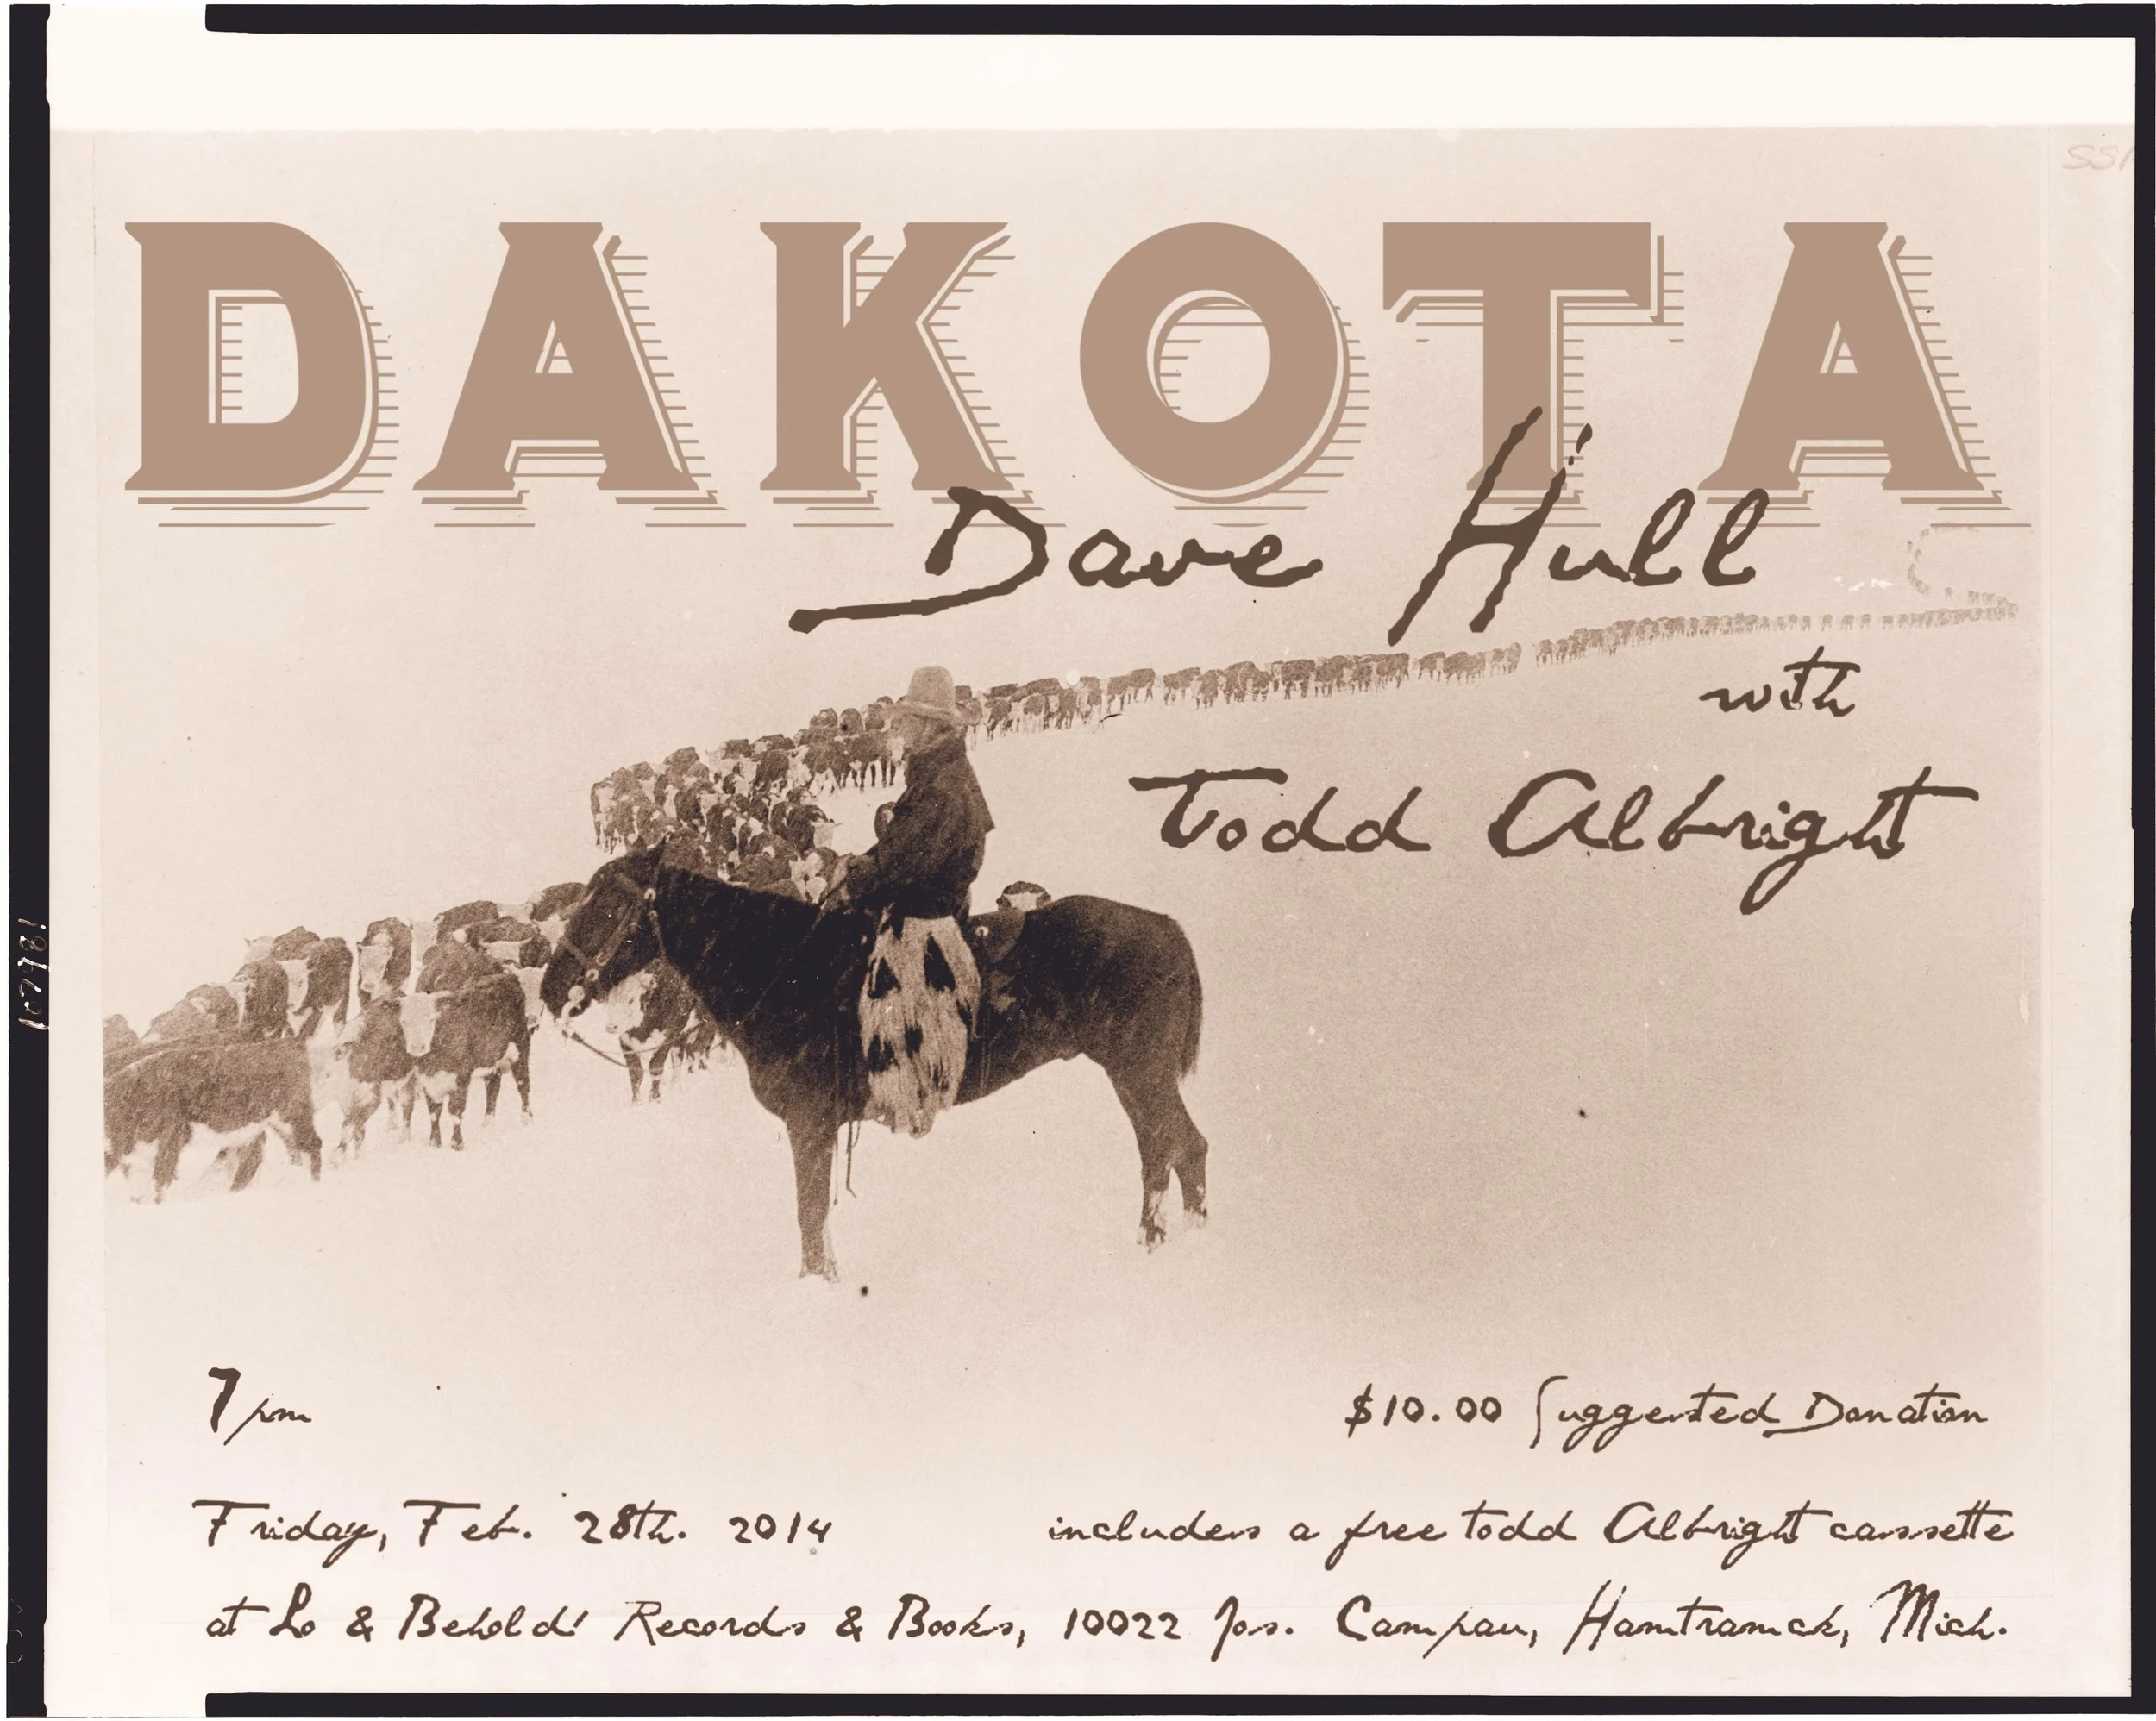 DAKOTA
Dave Hull
with
Todd Albright
7pm
$10.00 Suggested Donation
Friday, Feb. 28th. 2014
includes a free Todd Albright cassette
at Lo & Behold! Records & Books, 10022 Jos. Campau, Hamtramck, Mich.